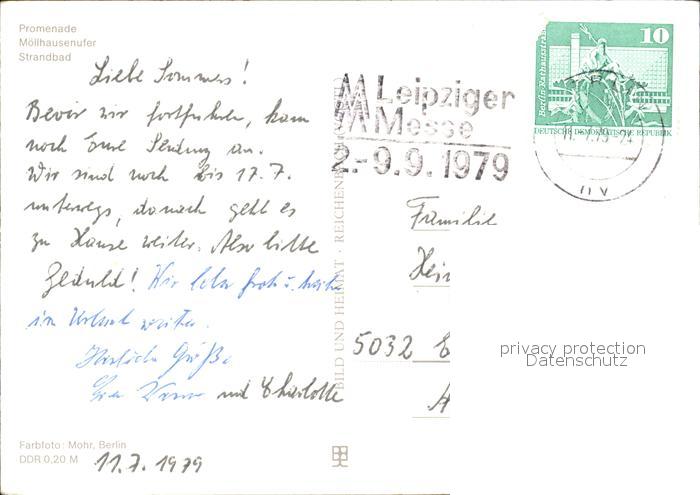 Promenade
Möllhausenufer
Strandbad
Liebe Sommers!
Bevor wir fortfuhren, kam
noch Eure Sendung an.
Wir sind noch bis 17.7.
unterwegs, danach geht es
zu Hause weiter. Also bitte
Geduld! Wir leben froh u. heiter
im Urlaub weiter.
Herzliche Grüße
und Charlotte
Farbfoto: Mohr, Berlin
DDR 0,20 M
11.7.1979
BILD UND HEIMAT · REICHENB
Leipziger
Messe
2.-9.9.1979
10
Berlin · Rathausstraße
DEUTSCHE DEMOKRATISCHE REPUBLIK
Familie
5032
privacy protection
Datenschutz